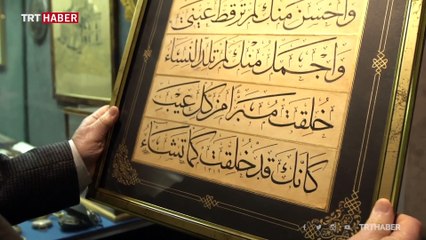 TRT HABER
وَأَحْسَنُ مِنْكَ لَمْ تَرَ قَطُّ عَيْنِي
وَأَجْمَلُ مِنْكَ لَمْ تَلِدِ النِّسَاءُ
خُلِقْتَ مُبَرَّأً مِنْ كُلِّ عَيْبٍ
كَأَنَّكَ قَدْ خُلِقْتَ كَمَا تَشَاءُ
TRTHABER
TRTHABER